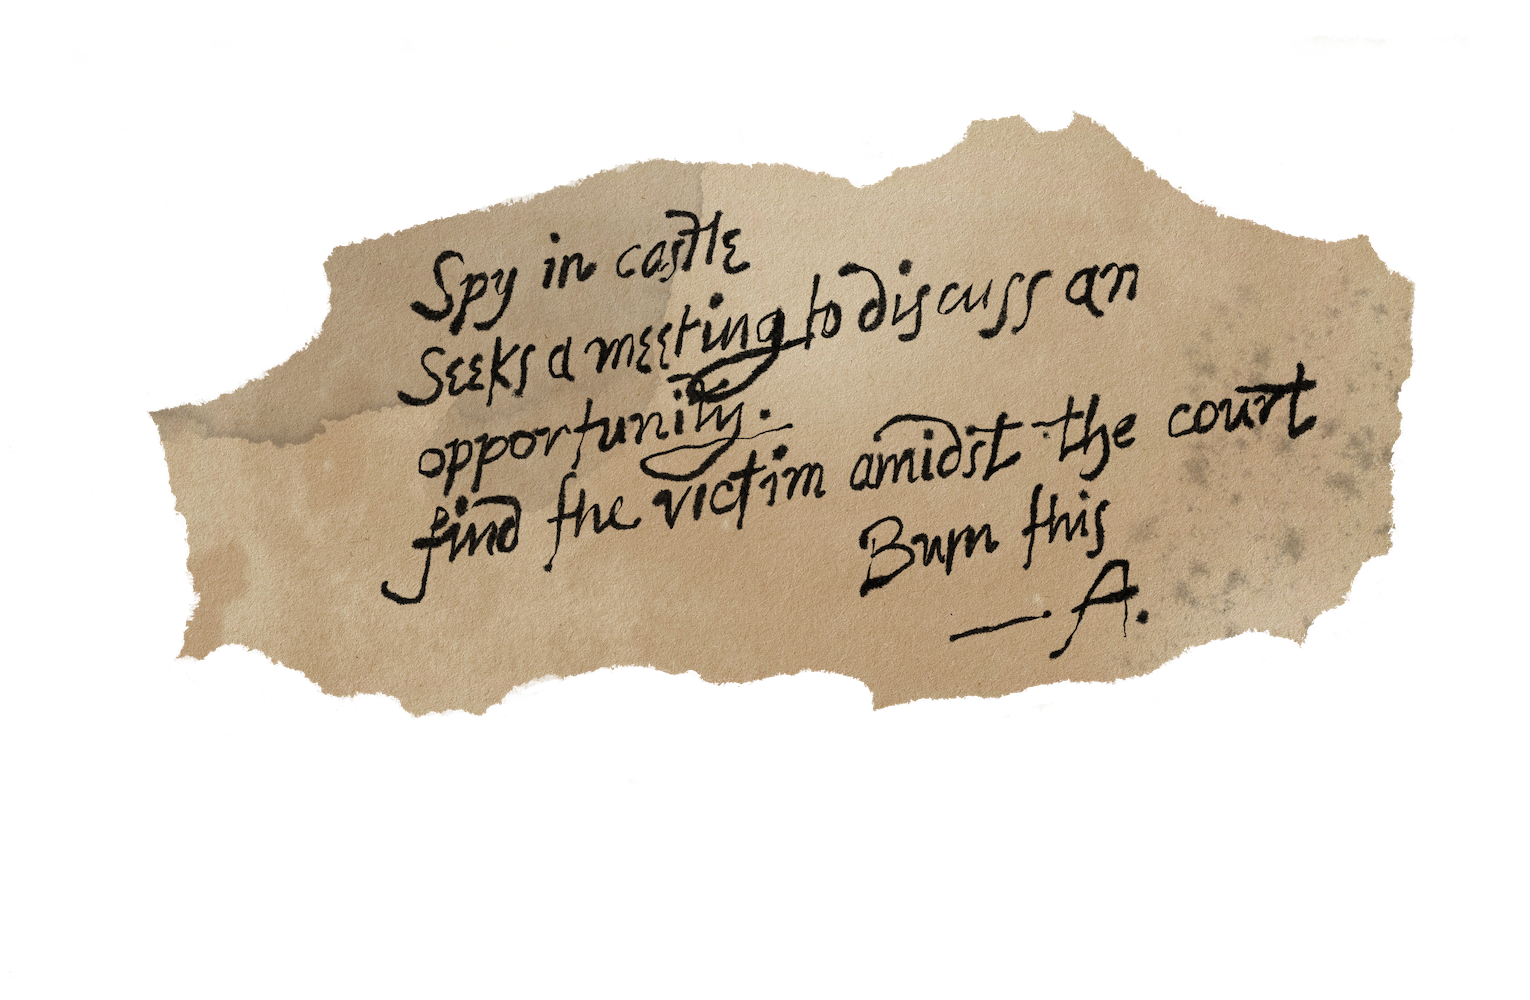 Spy in castle
Seeks a meeting to discuss an
opportunity.
find the victim amidst the court
Burn this
— A.